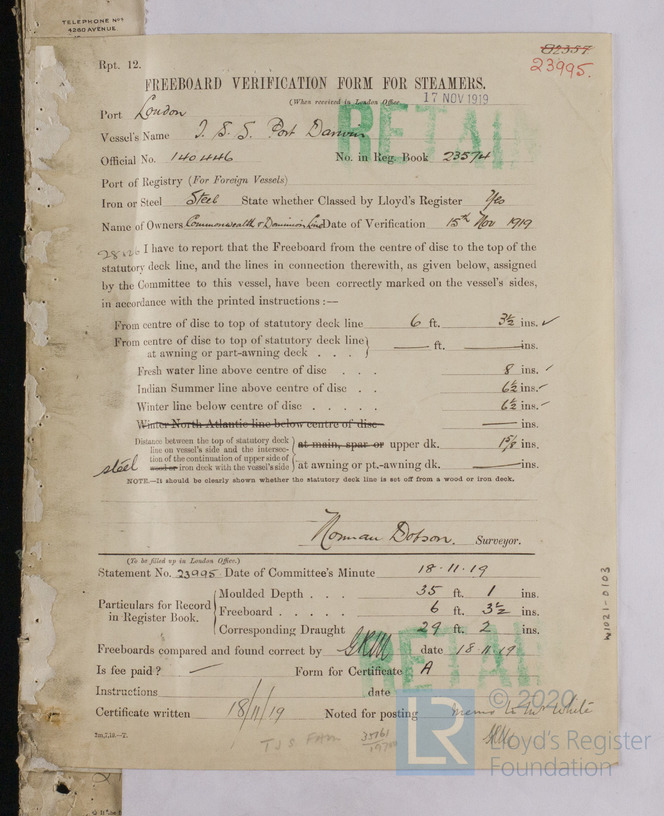 TELEPHONE Nos
4280 AVENUE
Rpt. 12.
62357
23995.
FREEBOARD VERIFICATION FORM FOR STEAMERS.
(When received in London Office
17 NOV 1919
RETAIN
Port London
Vessel's Name T. S. S. Port Darwin
Official No. 140446 No. in Reg. Book 23574
Port of Registry (For Foreign Vessels)
Iron or Steel Steel State whether Classed by Lloyd's Register Yes
Name of Owners Commonwealth & Dominion Line Date of Verification 15th Nov 1919
I have to report that the Freeboard from the centre of disc to the top of the
statutory deck line, and the lines in connection therewith, as given below, assigned
by the Committee to this vessel, have been correctly marked on the vessel's sides,
in accordance with the printed instructions :—
From centre of disc to top of statutory deck line 6 ft. 3½ ins. ✓
From centre of disc to top of statutory deck line
at awning or part-awning deck . . . — ft. — ins.
Fresh water line above centre of disc . . . 8 ins. ✓
Indian Summer line above centre of disc . . 6½ ins. ✓
Winter line below centre of disc . . . . . 6½ ins. ✓
Winter North Atlantic line below centre of disc — ins.
Distance between the top of statutory deck
line on vessel's side and the intersec-
tion of the continuation of upper side of
steel wood or iron deck with the vessel's side
at main, spar or upper dk. 1⅝ ins.
at awning or pt.-awning dk. — ins.
NOTE.—It should be clearly shown whether the statutory deck line is set off from a wood or iron deck.
Norman Dobson. Surveyor.
(To be filled up in London Office.)
Statement No. 23995. Date of Committee's Minute 18.11.19
Particulars for Record
in Register Book.
Moulded Depth . . . 35 ft. 1 ins.
Freeboard . . . . . 6 ft. 3½ ins.
Corresponding Draught 29 ft. 2 ins.
RETAIN
Freeboards compared and found correct by date 18.11.19
Is fee paid? — Form for Certificate A
Instructions date
Certificate written 18/11/19 Noted for posting Memo to Mr White
2m,7,18.—T.
TSS Form
W1021-0103
© 2020
LR
Lloyd's Register
Foundation